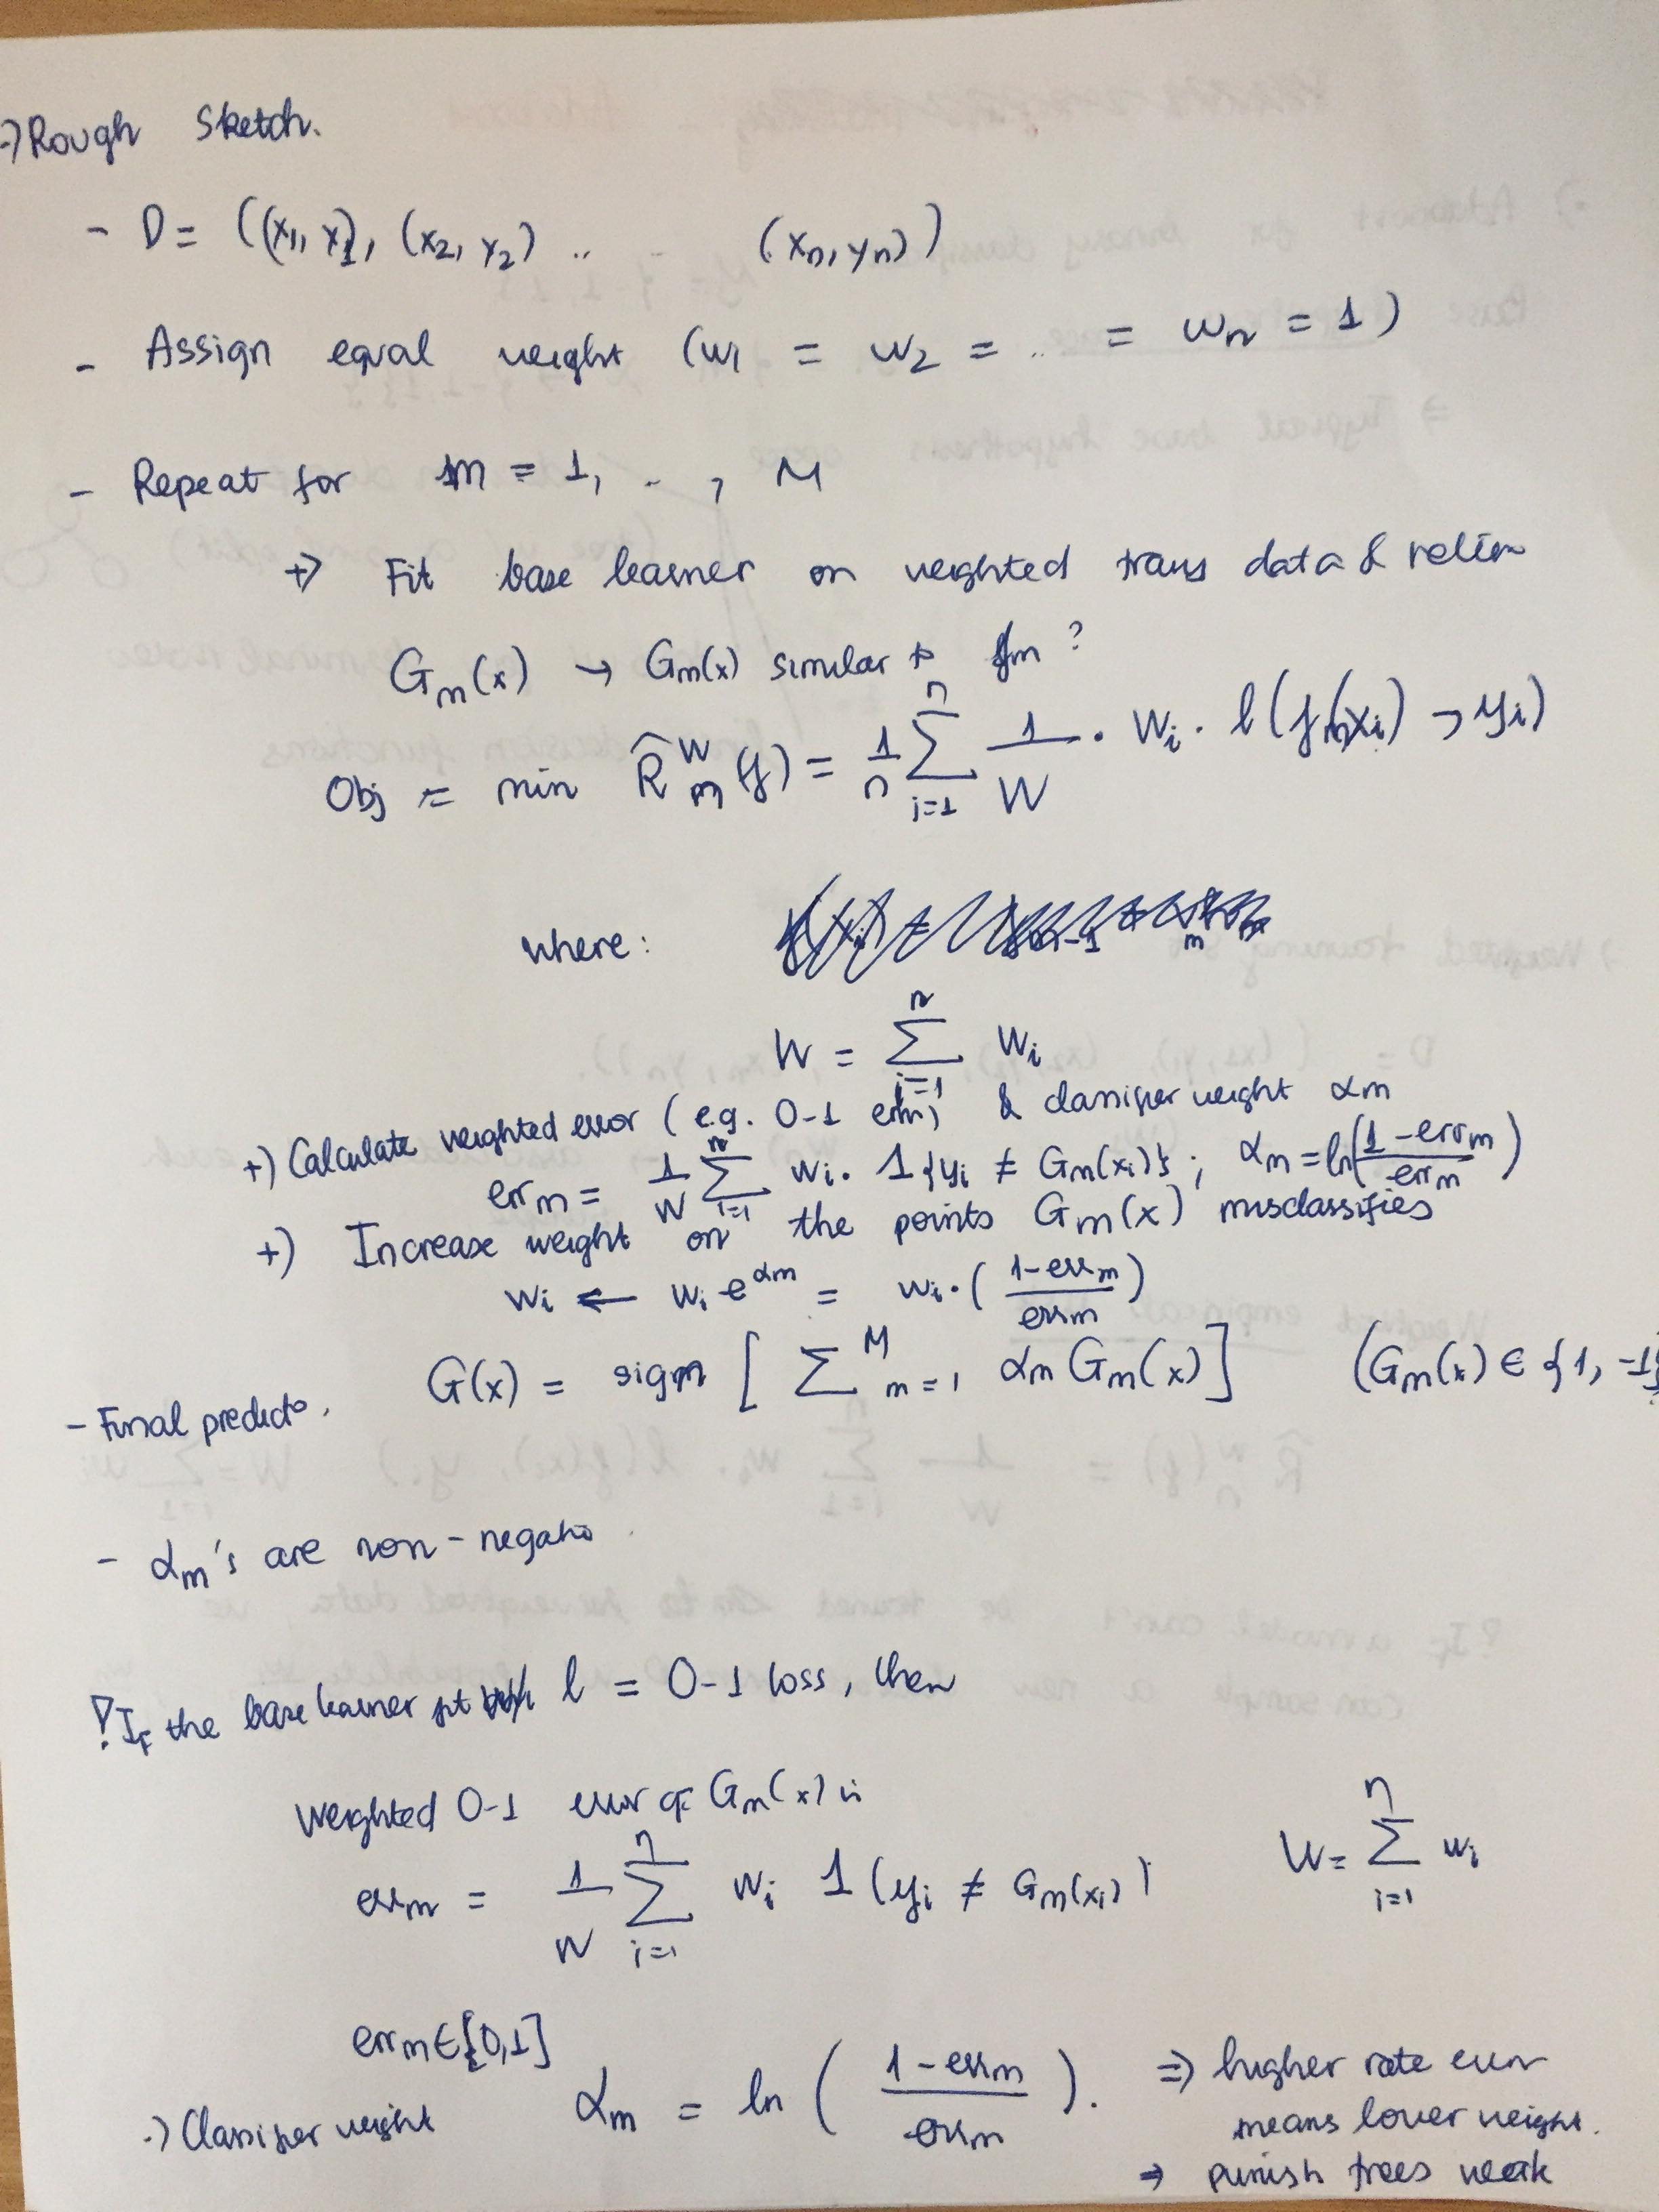 ·) Rough Sketch.
- D = ((x₁, y₁), (x₂, y₂) .. (xₙ, yₙ))
- Assign equal weight (w₁ = w₂ = .. = wₙ = 1)
- Repeat for m = 1, .. , M
+) Fit base learner on weighted data & return
Gₘ(x) → Gₘ(x) similar to fₘ ?
Obj = min R̂ᵂₘ(f) = 1/n Σⁿᵢ₌₁ 1/W · Wᵢ · l(fₘ(xᵢ), yᵢ)
where:
W = Σⁿᵢ₌₁ Wᵢ
+) Calculate weighted error (e.g. 0-1 err) & classifier weight αₘ
errₘ = 1/W Σⁿᵢ₌₁ wᵢ · 1{yᵢ ≠ Gₘ(xᵢ)} ; αₘ = ln((1 - errₘ)/errₘ)
+) Increase weight on the points Gₘ(x) misclassifies
wᵢ ← wᵢ e^αₘ = wᵢ · ((1 - errₘ)/errₘ)
- Final predictor. G(x) = sign [ Σᴹₘ₌₁ αₘ Gₘ(x) ] (Gₘ(x) ∈ {1, -1}
- αₘ's are non-negative.
! If the base learner fit l = 0-1 loss, then
Weighted 0-1 error of Gₘ(x) is
errₘ = 1/W Σⁿᵢ₌₁ wᵢ 1(yᵢ ≠ Gₘ(xᵢ)) W = Σⁿᵢ₌₁ wᵢ
errₘ ∈ [0,1]
·) Classifier weight αₘ = ln ((1 - errₘ)/errₘ). ⇒ higher rate error
means lower weight.
⇒ punish trees weak